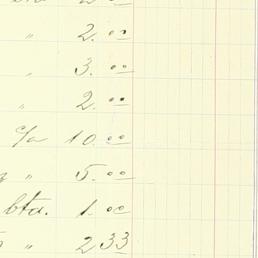 " 2.00
" 3.00
" 2.00
c/a 10.00
" 5.00
bta. 1.00
" 2 33